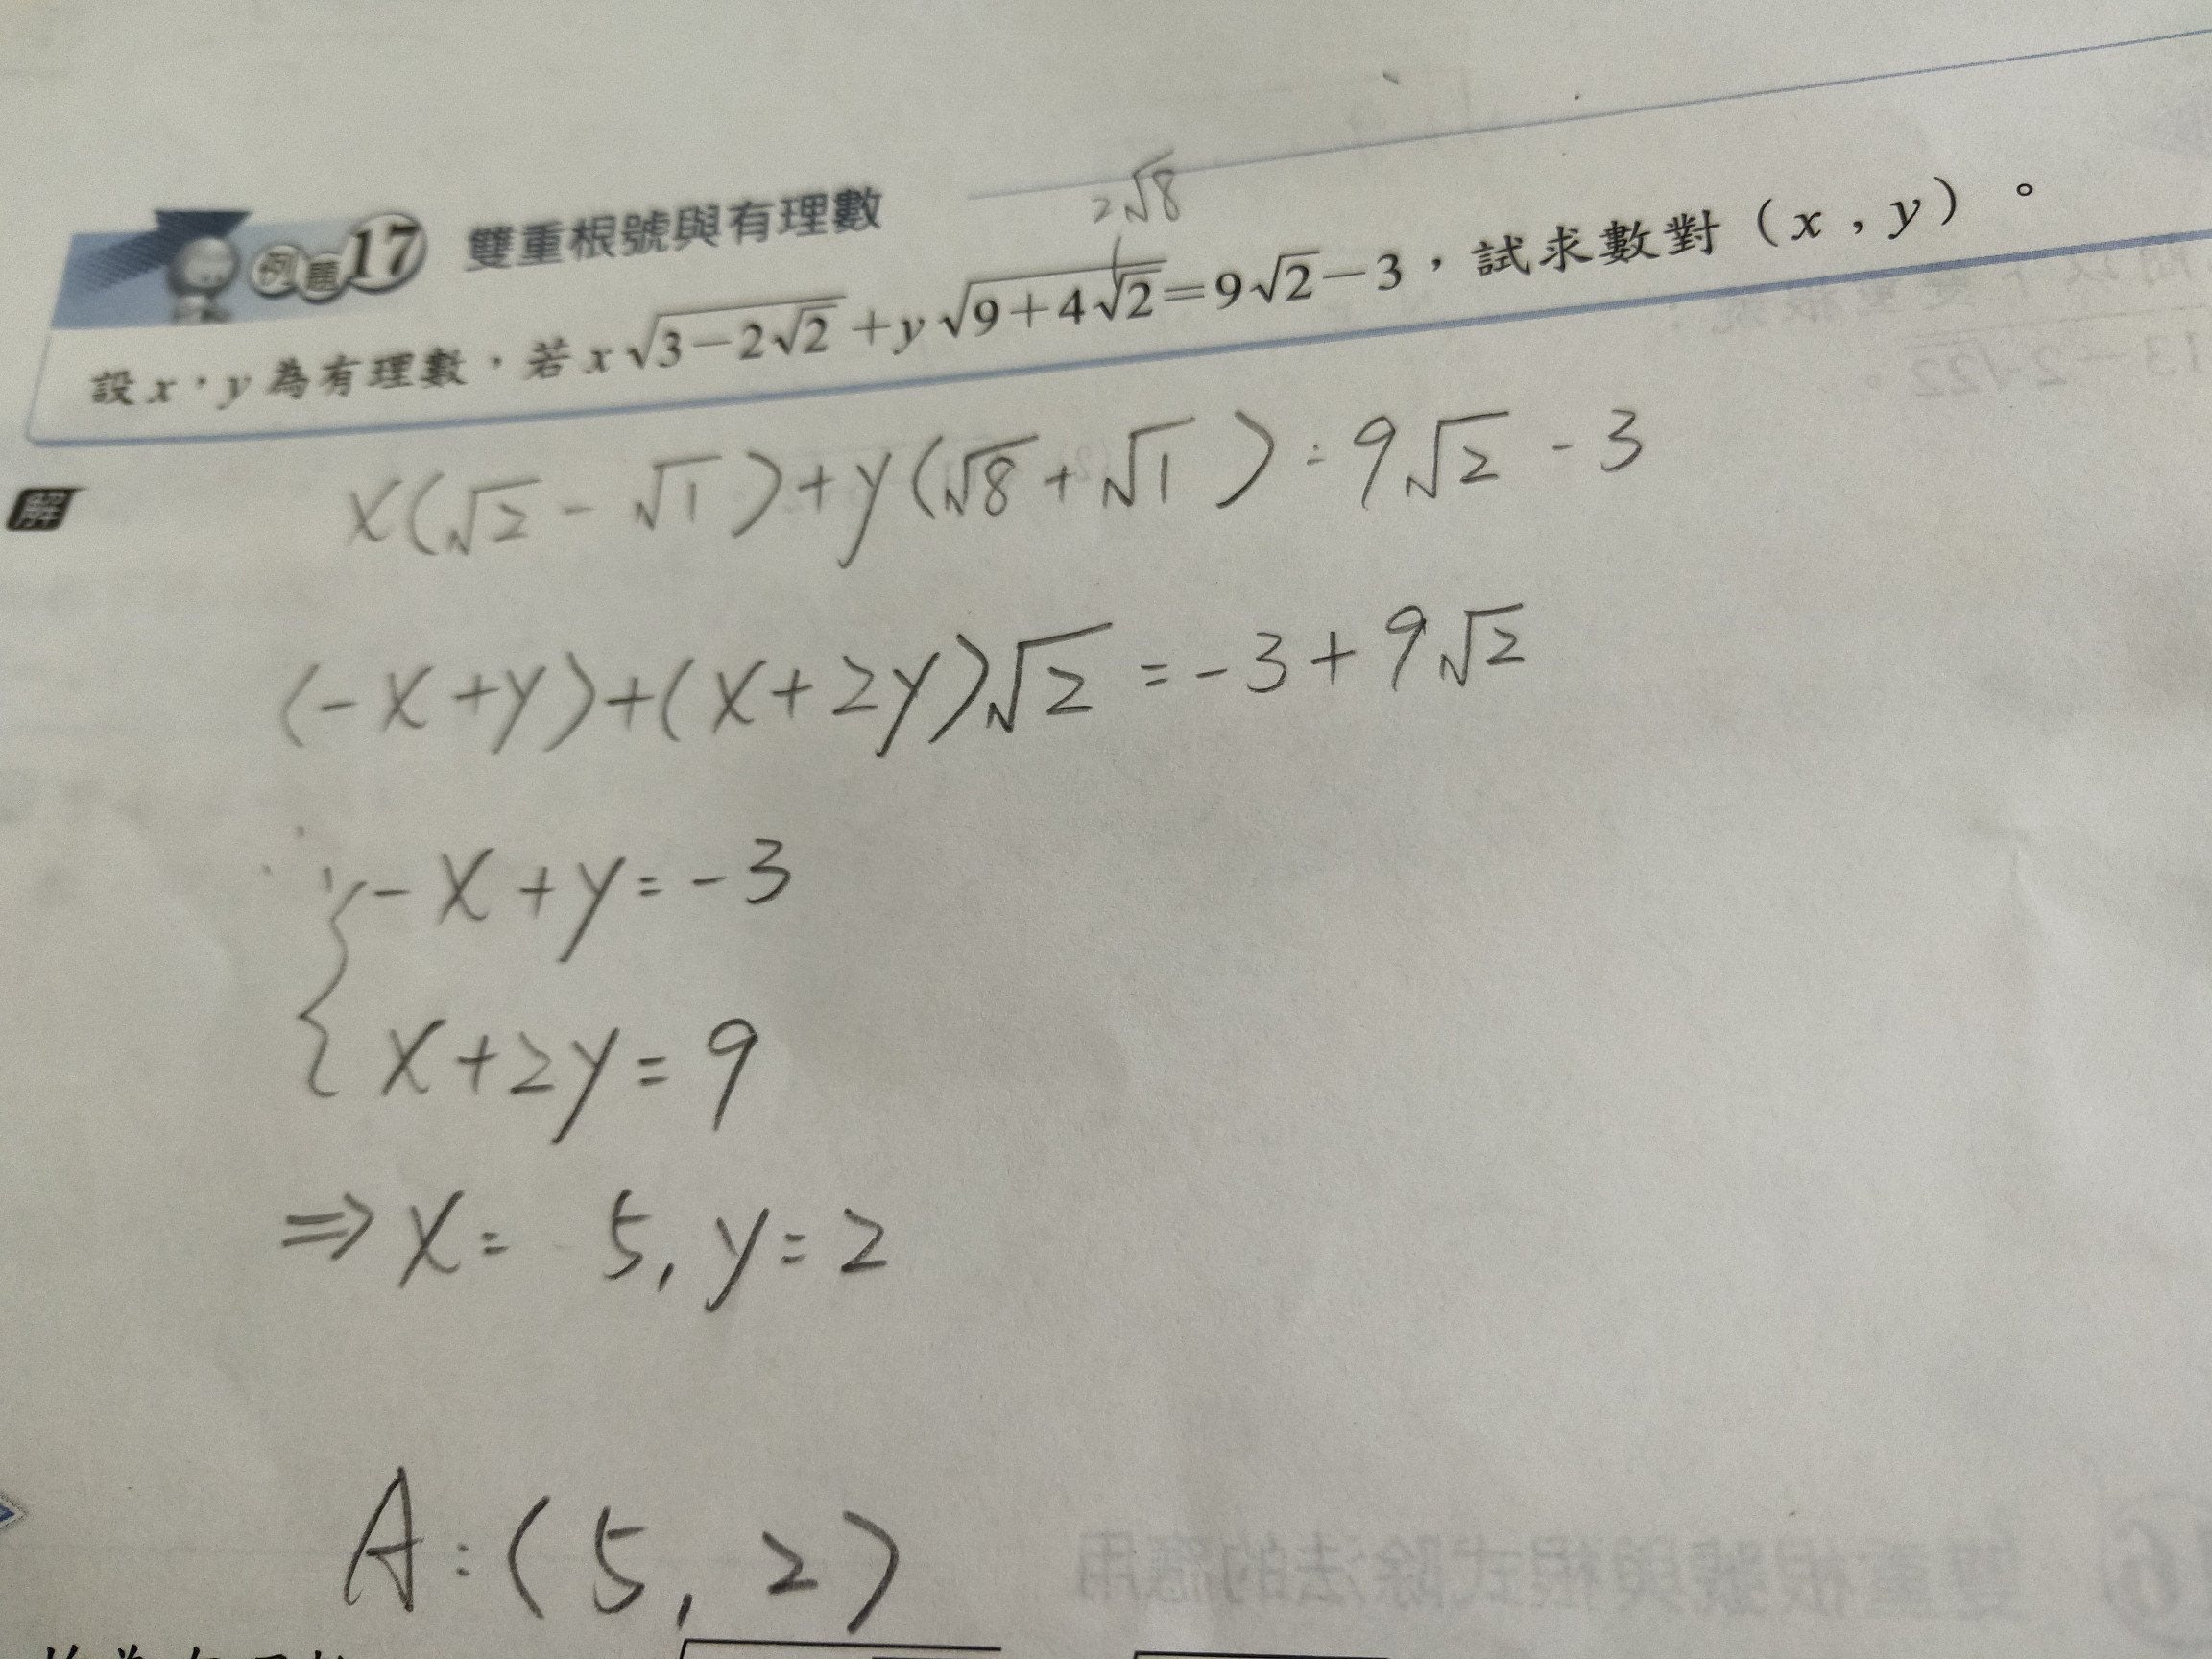 2√8
例題17 雙重根號與有理數
設 x，y 為有理數，若 x√(3−2√2)+y√(9+4√2)=9√2−3，試求數對（x , y）。
解
x(√2 - √1)+y(√8+√1) = 9√2 - 3
(-x+y)+(x+2y)√2 = -3+9√2
-x+y=-3
x+2y=9
⇒ x= 5, y=2
A:(5, 2)